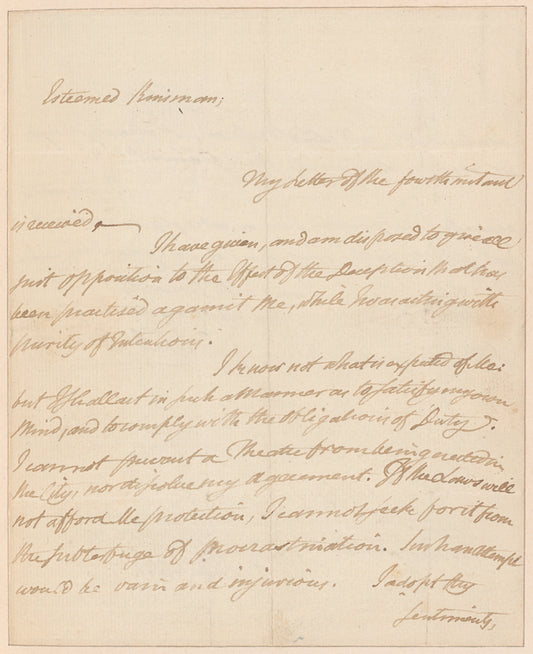 Esteemed Kinsman;
Thy Letter of the fourth instant
is received,
I have given, and am disposed to give all
just opposition to the Effect of the Deception that has
been practised against Me, while I was acting with
purity of Intentions.
I know not what is expected of Me:
but I shall act in such a Manner as to satisfy my own
Mind, and to comply with the Obligations of Duty.
I cannot prevent a Theatre from being erected in
the City, nor dissolve my agreement. If the Laws will
not afford Me protection, I cannot seek for it from
the subterfuge of procrastination. Such an attempt
would be vain and injurious. I adopt thy
Sentiments,